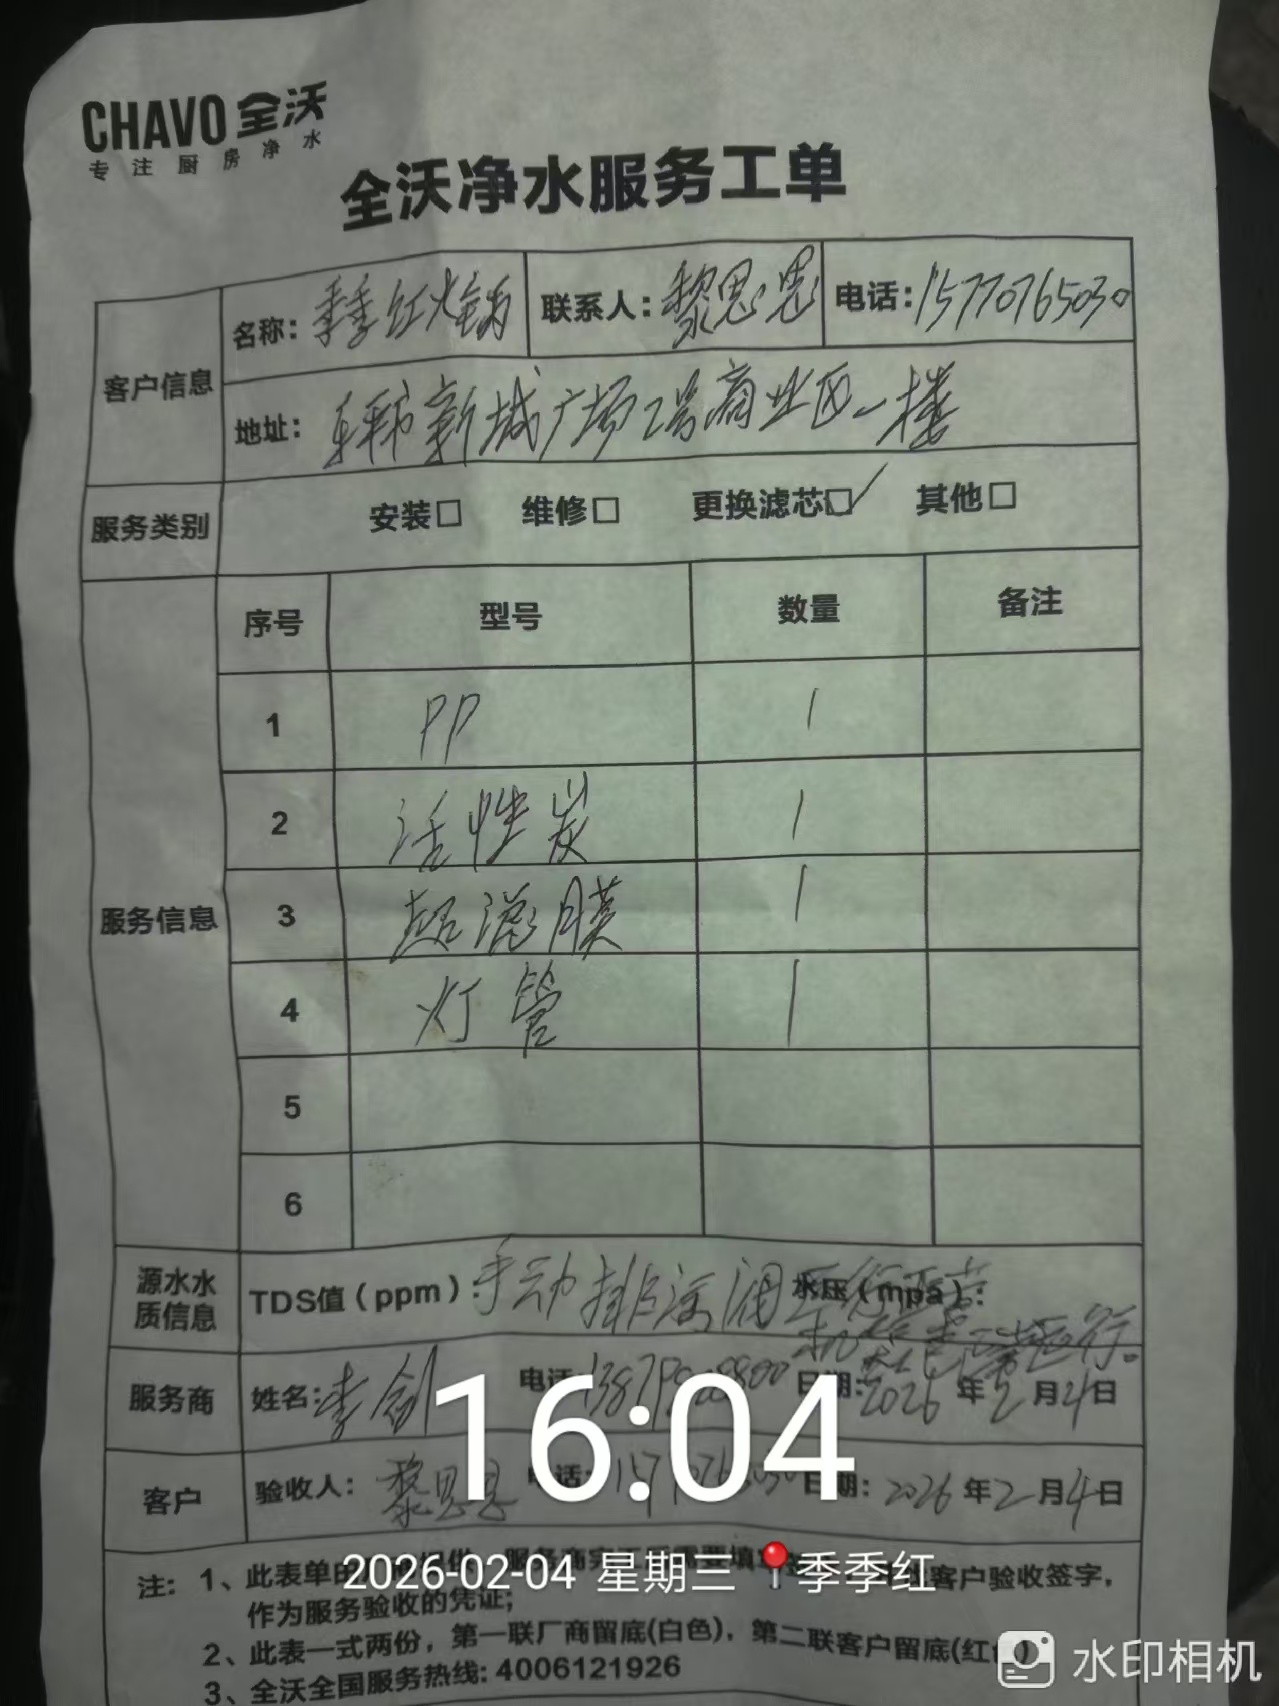 CHAVO 全沃
专注厨房净水
全沃净水服务工单
客户信息 名称：季季红火锅 联系人：黎思思 电话：15770765030
地址：新城广场2号商业区一楼
服务类别 安装□ 维修□ 更换滤芯□✓ 其他□
服务信息 序号 型号 数量 备注
1 PP 1
2 活性炭 1
3 超滤膜 1
4 灯管 1
5
6
源水水质信息 TDS值（ppm）：手动排污阀 水压（mpa）：
运行。
服务商 姓名：李剑 电话 日期：2026年2月4日
客户 验收人：黎思思 电话： 日期：2026年2月4日
16:04
2026-02-04 星期三 季季红
注：1、此表单由 服务商 需要填 客户验收签字，
作为服务验收的凭证；
2、此表一式两份，第一联厂商留底(白色)，第二联客户留底(红
3、全沃全国服务热线：4006121926
水印相机